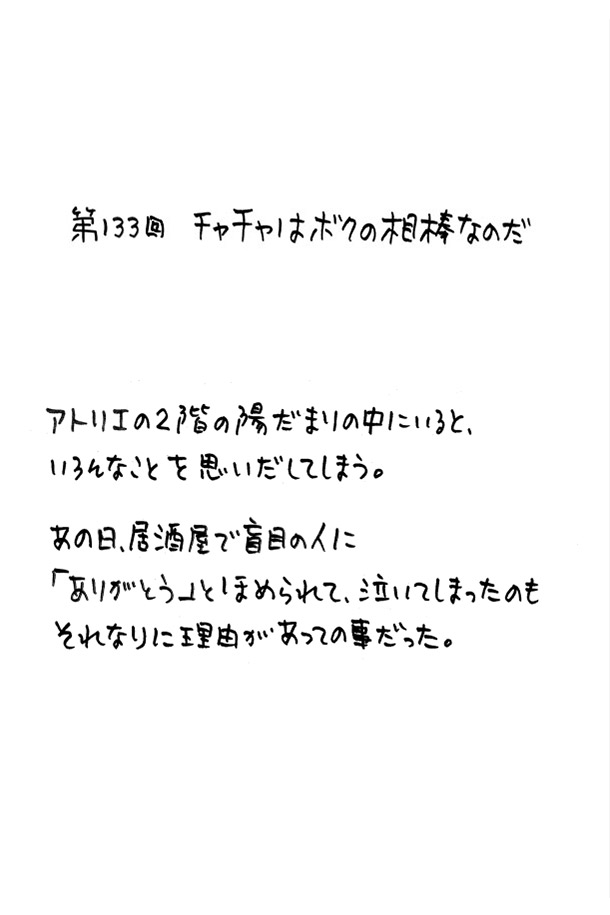 第133回 チャチャはボクの相棒なのだ
アトリエの2階の陽だまりの中にいると、
いろんなことを思いだしてしまう。
あの日、居酒屋で盲目の人に
「ありがとう」とほめられて、泣いてしまったのも
それなりに理由があっての事だった。